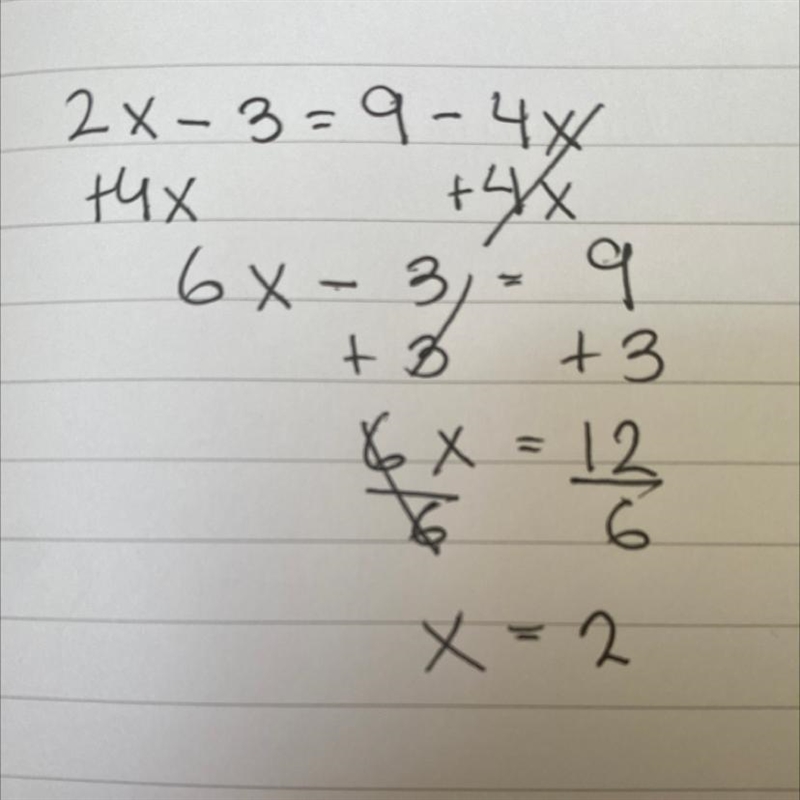 2x - 3 = 9 - 4x
+4x +4x
6x - 3 = 9
+ 3 + 3
6x = 12
6 6
x = 2